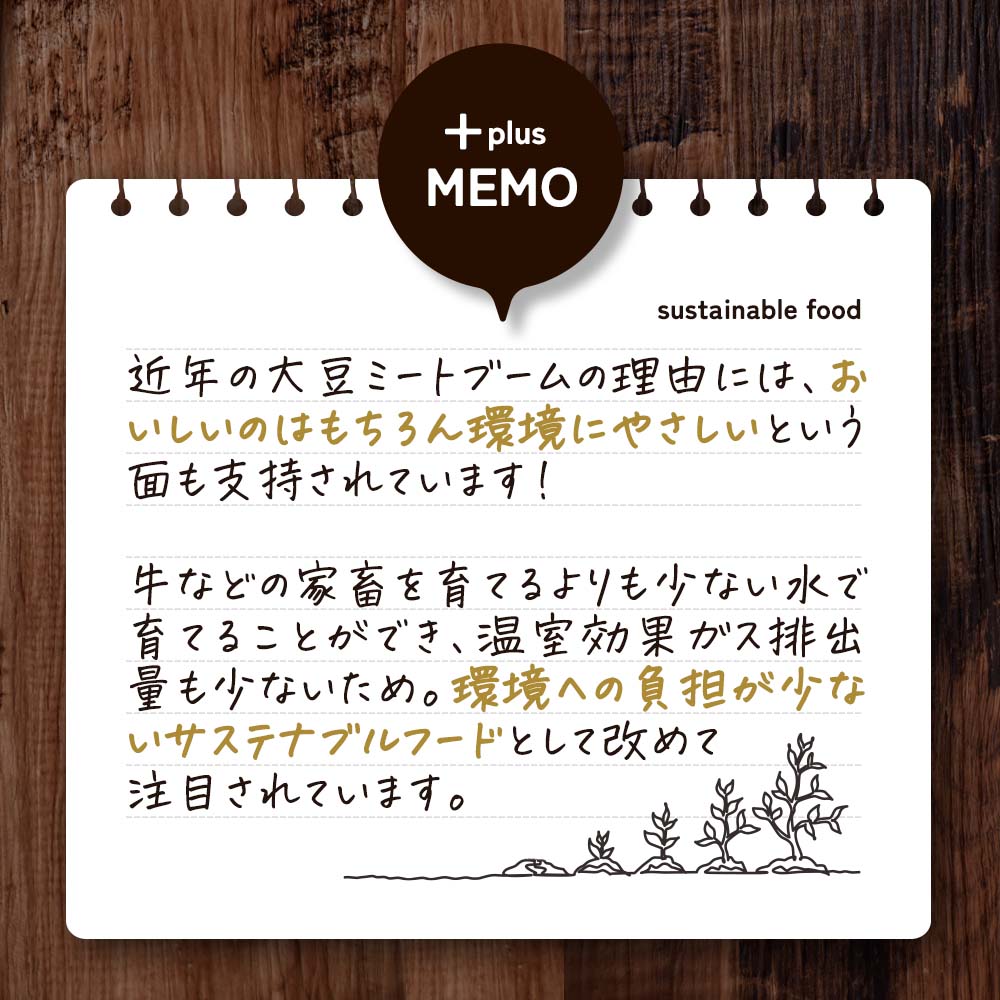 +plus
MEMO
sustainable food
近年の大豆ミートブームの理由には、お
いしいのはもちろん環境にやさしいという
面も支持されています!
牛などの家畜を育てるよりも少ない水で
育てることができ、温室効果ガス排出
量も少ないため。環境への負担が少な
いサステナブルフードとして改めて
注目されています。